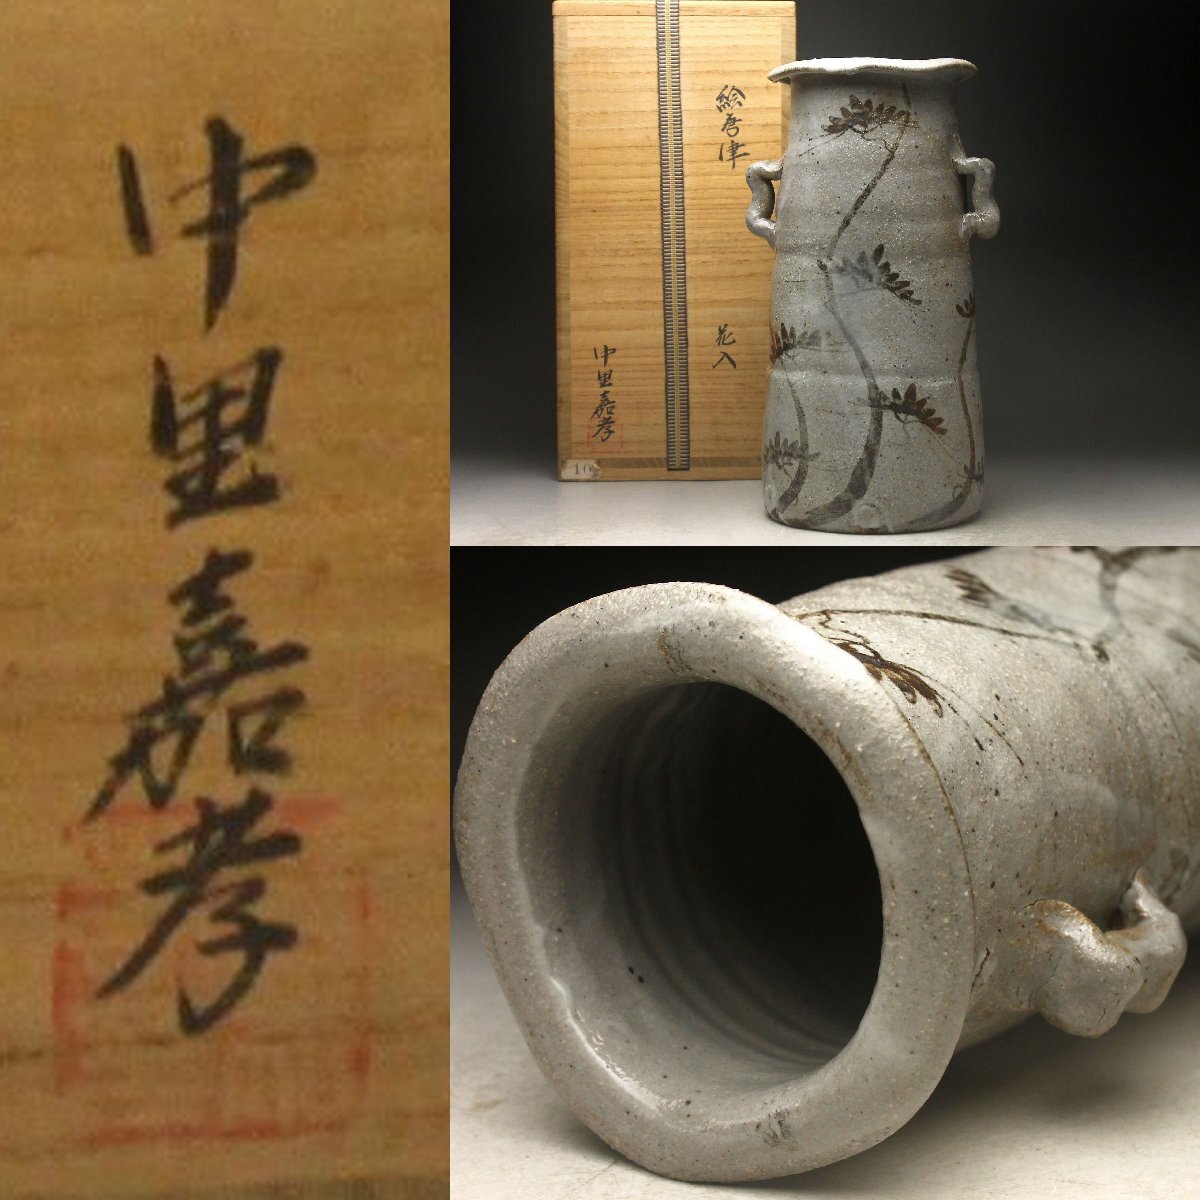 中里嘉孝
絵唐津
花入
中里嘉孝
10